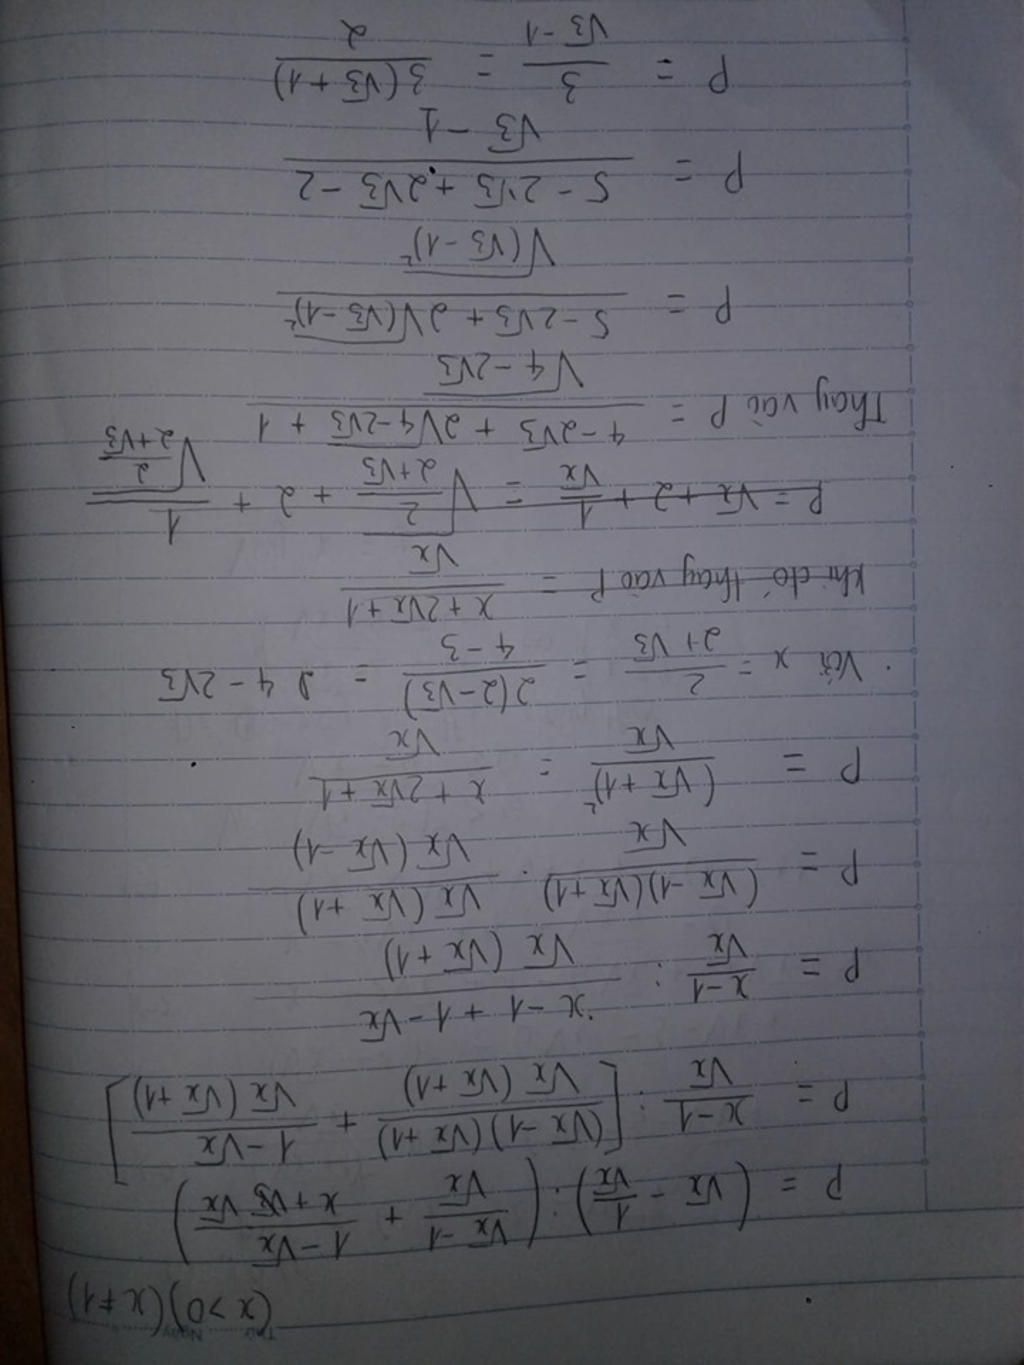 Thứ Ngày
(x > 0) (x ≠ 1)
P = (√x - 1/√x) : ((√x - 1)/√x + (1 - √x)/(x + √x))
P = (x - 1)/√x : [(√x - 1)(√x + 1)/(√x (√x + 1)) + (1 - √x)/(√x (√x + 1))]
P = (x - 1)/√x : (x - 1 + 1 - √x)/(√x (√x + 1))
P = (√x - 1)(√x + 1)/√x . √x (√x + 1)/(√x (√x - 1))
P = (√x + 1)²/√x = (x + 2√x + 1)/√x
Với x = 2/(2 + √3) = 2(2 - √3)/(4 - 3) = 4 - 2√3
Khi đó thay vào P = (x + 2√x + 1)/√x
P = √x + 2 + 1/√x = √(2/(2 + √3)) + 2 + 1/√(2/(2 + √3))
Thay vào P = (4 - 2√3 + 2√(4 - 2√3) + 1)/√(4 - 2√3)
P = (5 - 2√3 + 2√(√3 - 1)²)/√(√3 - 1)²
P = (5 - 2√3 + 2√3 - 2)/(√3 - 1)
P = 3/(√3 - 1) = 3(√3 + 1)/2